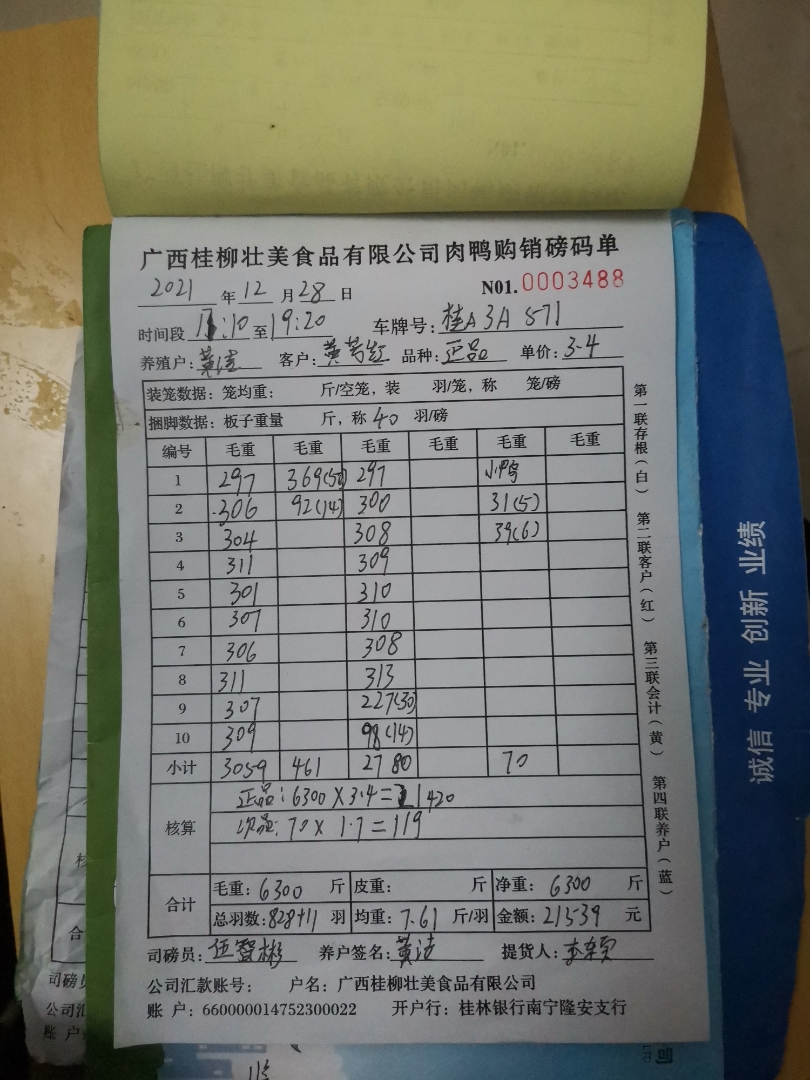 广西桂柳壮美食品有限公司肉鸭购销磅码单
2021 年 12 月 28 日 N01.0003488
时间段 :10 至 19:20 车牌号: 桂A 3A 571
养殖户: 黄洁 客户: 品种: 正品 单价: 3.4
装笼数据: 笼均重: 斤/空笼, 装 羽/笼, 称 笼/磅
捆脚数据: 板子重量 斤, 称 40 羽/磅
编号 毛重 毛重 毛重 毛重 毛重 毛重
1 297 369(50) 297 小鸭
2 306 92(14) 300 31(5)
3 304 308 39(6)
4 311 309
5 301 310
6 307 310
7 306 308
8 311 313
9 307 227(30)
10 309 98(14)
小计 3059 461 2780 70
核算
正品: 6300 X 3.4 = 21420
次品: 70 X 1.7 = 119
合计
毛重: 6300 斤 皮重: 斤 净重: 6300 斤
总羽数: 828+11 羽 均重: 7.61 斤/羽 金额: 21539 元
司磅员: 养户签名: 黄洁 提货人:
公司汇款账号: 户名: 广西桂柳壮美食品有限公司
账 户: 660000014752300022 开户行: 桂林银行南宁隆安支行
第一联存根(白) 第二联客户(红) 第三联会计(黄) 第四联养户(蓝)
诚信 专业 创新 业绩
核
合
司磅员
公司汇
账 户
司
LTD